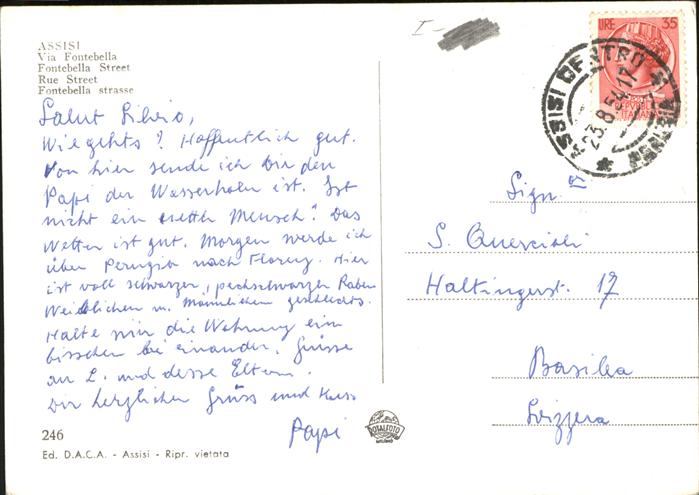 ASSISI
Via Fontebella
Fontebella Street
Rue Street
Fontebella strasse
Salut Silvio,
Wie gehts? Hoffentlich gut.
Von hier sende ich Dir den
Papi der Wasserhalm ist. Ist
nicht ein Mensch? Das
Wetter ist gut. Morgen werde ich
über Perugia nach Florenz. Hier
ist voll schwarzer, pechschwarzer Raben
Weiblichen u. Männlichen geschlechts.
Halte mir die Wohnung ein
bisschen bei einander. Grüsse
an L. und desse Eltern.
Dir herzlichen Grüss und Kuss
Papi
246
Ed. D.A.C.A. - Assisi - Ripr. vietata
ROTALFOTO
MILANO
I-
LIRE 35
REPUBBLICA
ITALIANA
ASSISI CENTRO
23.8.54.17
Sign.
S. Quercioli
Haltingerst. 17
Basilea
Svizzera